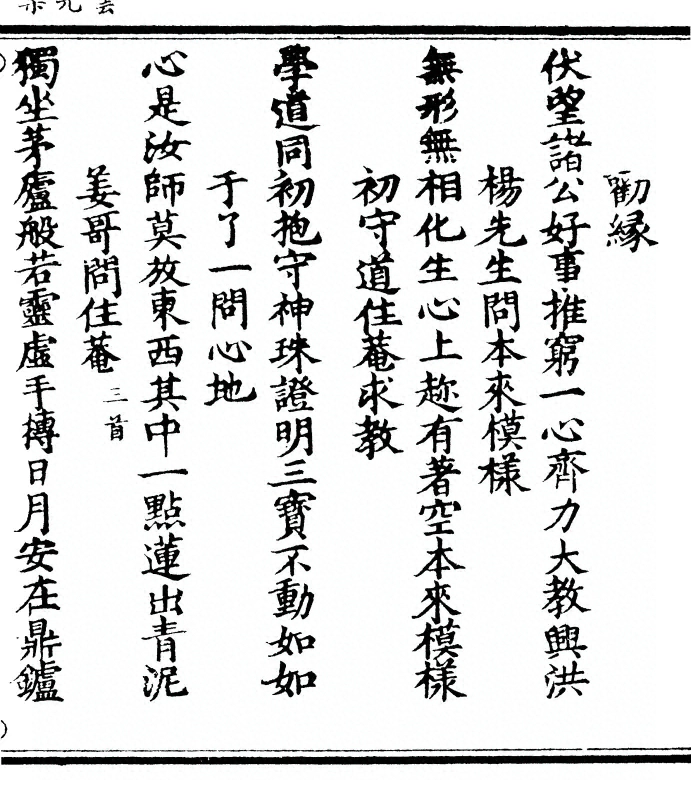 勸緣
伏望諸公好事推窮一心齊力大教興洪
楊先生問本來模樣
無形無相化生心上趂有著空本來模樣
初守道住菴求教
學道同初抱守神珠證明三寶不動如如
于了一問心地
心是汝師莫放東西其中一點蓮出青泥
姜哥問住菴三首
獨坐茅廬般若靈虛手摶日月安在鼎鑪